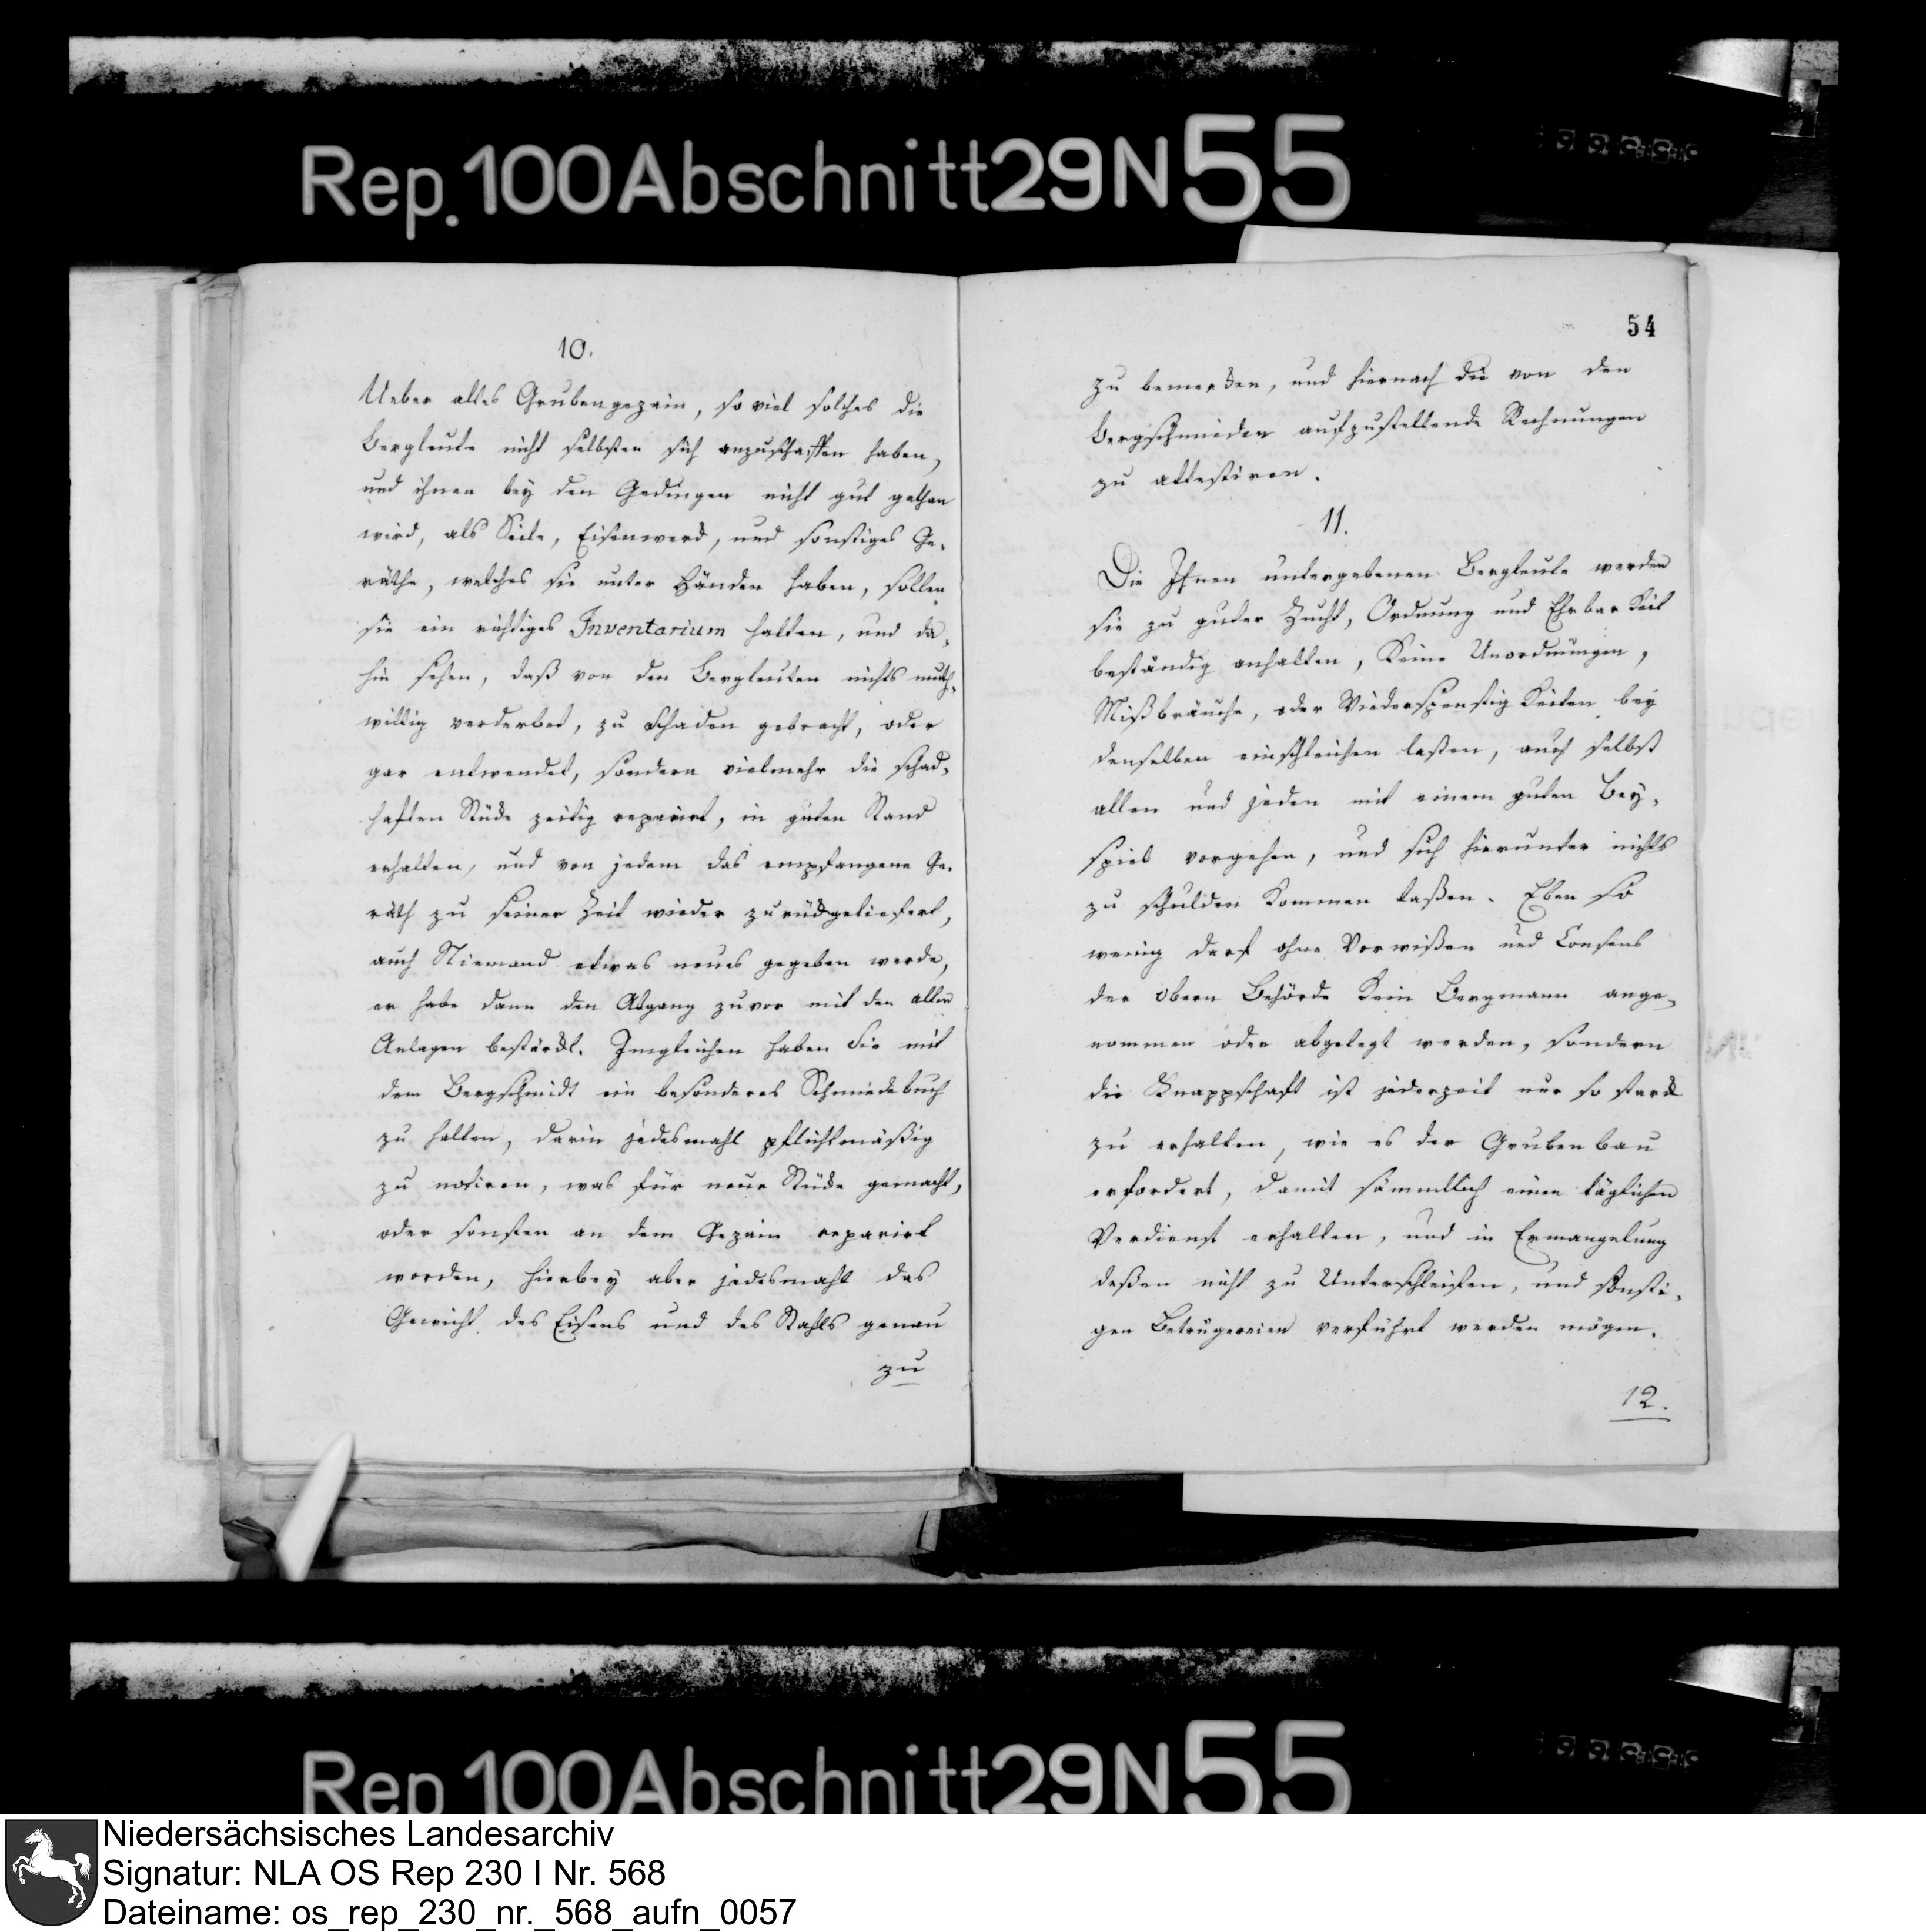 Rep. 100 Abschnitt 29 N 55
10.
Ueber alles Grubengezein, so viel solches die
Bergleute nicht selbsten sich anzuschaffen haben,
und ihnen bey den Gedingen nicht gut gethan
wird, als Seile, Eisenwerck, und sonstiges Ge-
räthe, welches sie unter Händen haben, sollen
sie ein richtiges Inventarium halten, und da-
hin sehen, daß von den Bergleuten nichts muth-
willig verderbet, zu Schaden gebracht, oder
gar entwendet, sondern vielmehr die schad-
haften Stücke zeitig reparirt, in guten Stand
erhalten, und von jedem das empfangene Ge-
räth zu seiner Zeit wieder zurückgeliefert,
auch Niemand etwas neues gegeben werde,
er habe dann den Abgang zuvor mit den alten
Anlagen bestärckt. Imgleichen haben Sie mit
dem Bergschmidt ein besonderes Schmiedebuch
zu halten, darin jedesmahl pflichtmäßig
zu notiren, was für neue Stücke gemacht,
oder sonsten an dem Gezein reparirt
worden, hierbey aber jedesmahl das
Gewicht des Eisens und des Stahls genau
zu
54
zu bemercken, und hiernach die von den
Bergschmieden aufzustellende Rechnungen
zu attestiren.
11.
Die Ihnen untergebenen Bergleute werden
sie zu guter Zucht, Ordnung und Ehrbarkeit
beständig anhalten, keine Unordnungen,
Mißbräuche, oder Wiederspenstigkeiten bey
denselben einschleichen laßen, auch selbst
allen und jeden mit einem guten Bey-
spiel vorgehen, und sich hierunter nichts
zu schulden kommen laßen. Eben so
wenig darf ohne Vorwißen und Consens
der obern Behörde kein Bergmann ange-
nommen oder abgelegt werden, sondern
die Knappschaft ist jederzeit nur so starck
zu erhalten, wie es der Grubenbau
erfordert, damit sämmtlich einen täglichen
Verdienst erhalten, und in Ermangelung
deßen nicht zu Unterschleifen, und sonsti-
gen Betrügereien verführt werden mögen.
12.
Rep 100 Abschnitt 29 N 55
Niedersächsisches Landesarchiv
Signatur: NLA OS Rep 230 I Nr. 568
Dateiname: os_rep_230_nr._568_aufn_0057